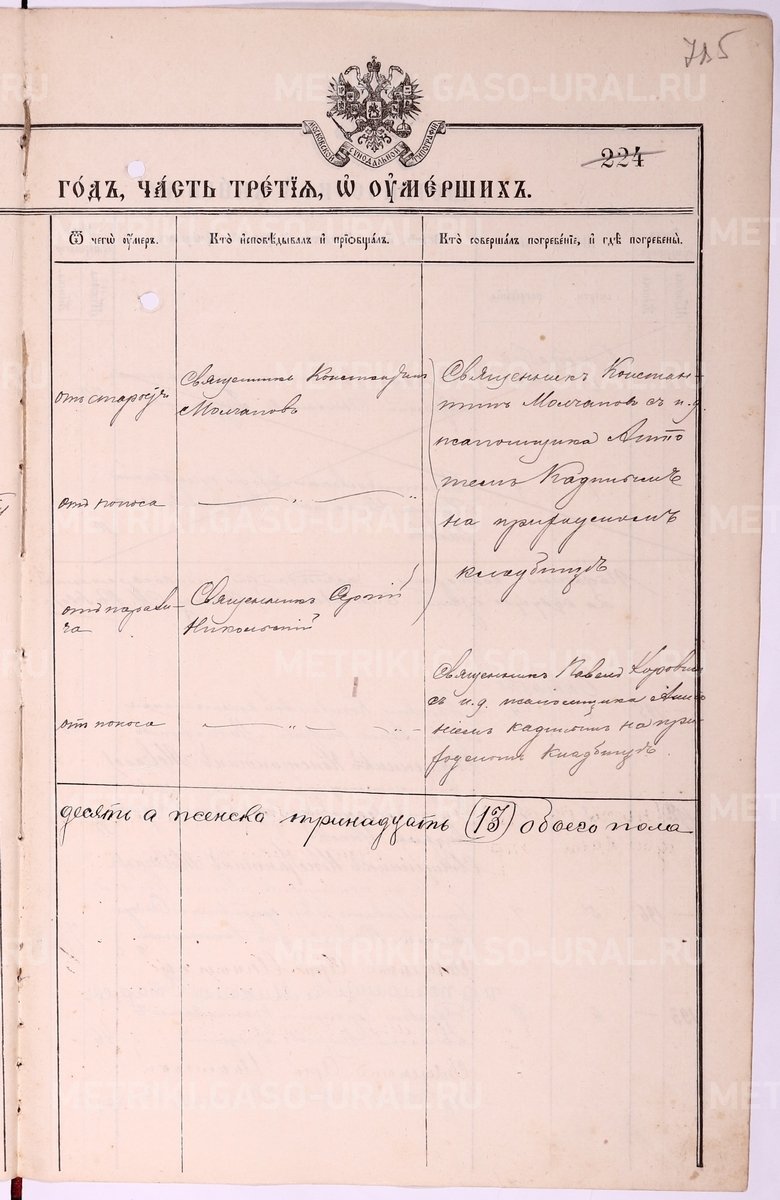 715
МОСКОВСКОЙ СѴНОДАЛЬНОЙ ТИПОГРАФІИ
224
ГО́ДЪ, ЧА́СТЬ ТРЕ́ТІЯ, Ѡ ОУМЕ́РШИХЪ.
Ѿ чегѡ̀ оу́меръ.
Кто̀ и҆сповѣ́дывалъ и҆ прїѡбща́лъ.
Кто̀ соверша́лъ погребе́нїе, и҆ гдѣ̀ погребены̀.
отъ старости
Священникъ Константинъ
Молчановъ
Священникъ Констан-
тинъ Молчановъ съ и.д.
псаломщика
Кадкинымъ
на приходскомъ
кладбищѣ
отъ поноса
— " —
отъ парали-
ча
Священникъ Сергій
Никольскій
отъ поноса
— " —
Священникъ Павелъ
съ и.д. псаломщика
Кадкинымъ на при-
ходскомъ кладбищѣ.
десять а женска тринадцать (13) обоего пола
METRIKI.GASO-URAL.RU